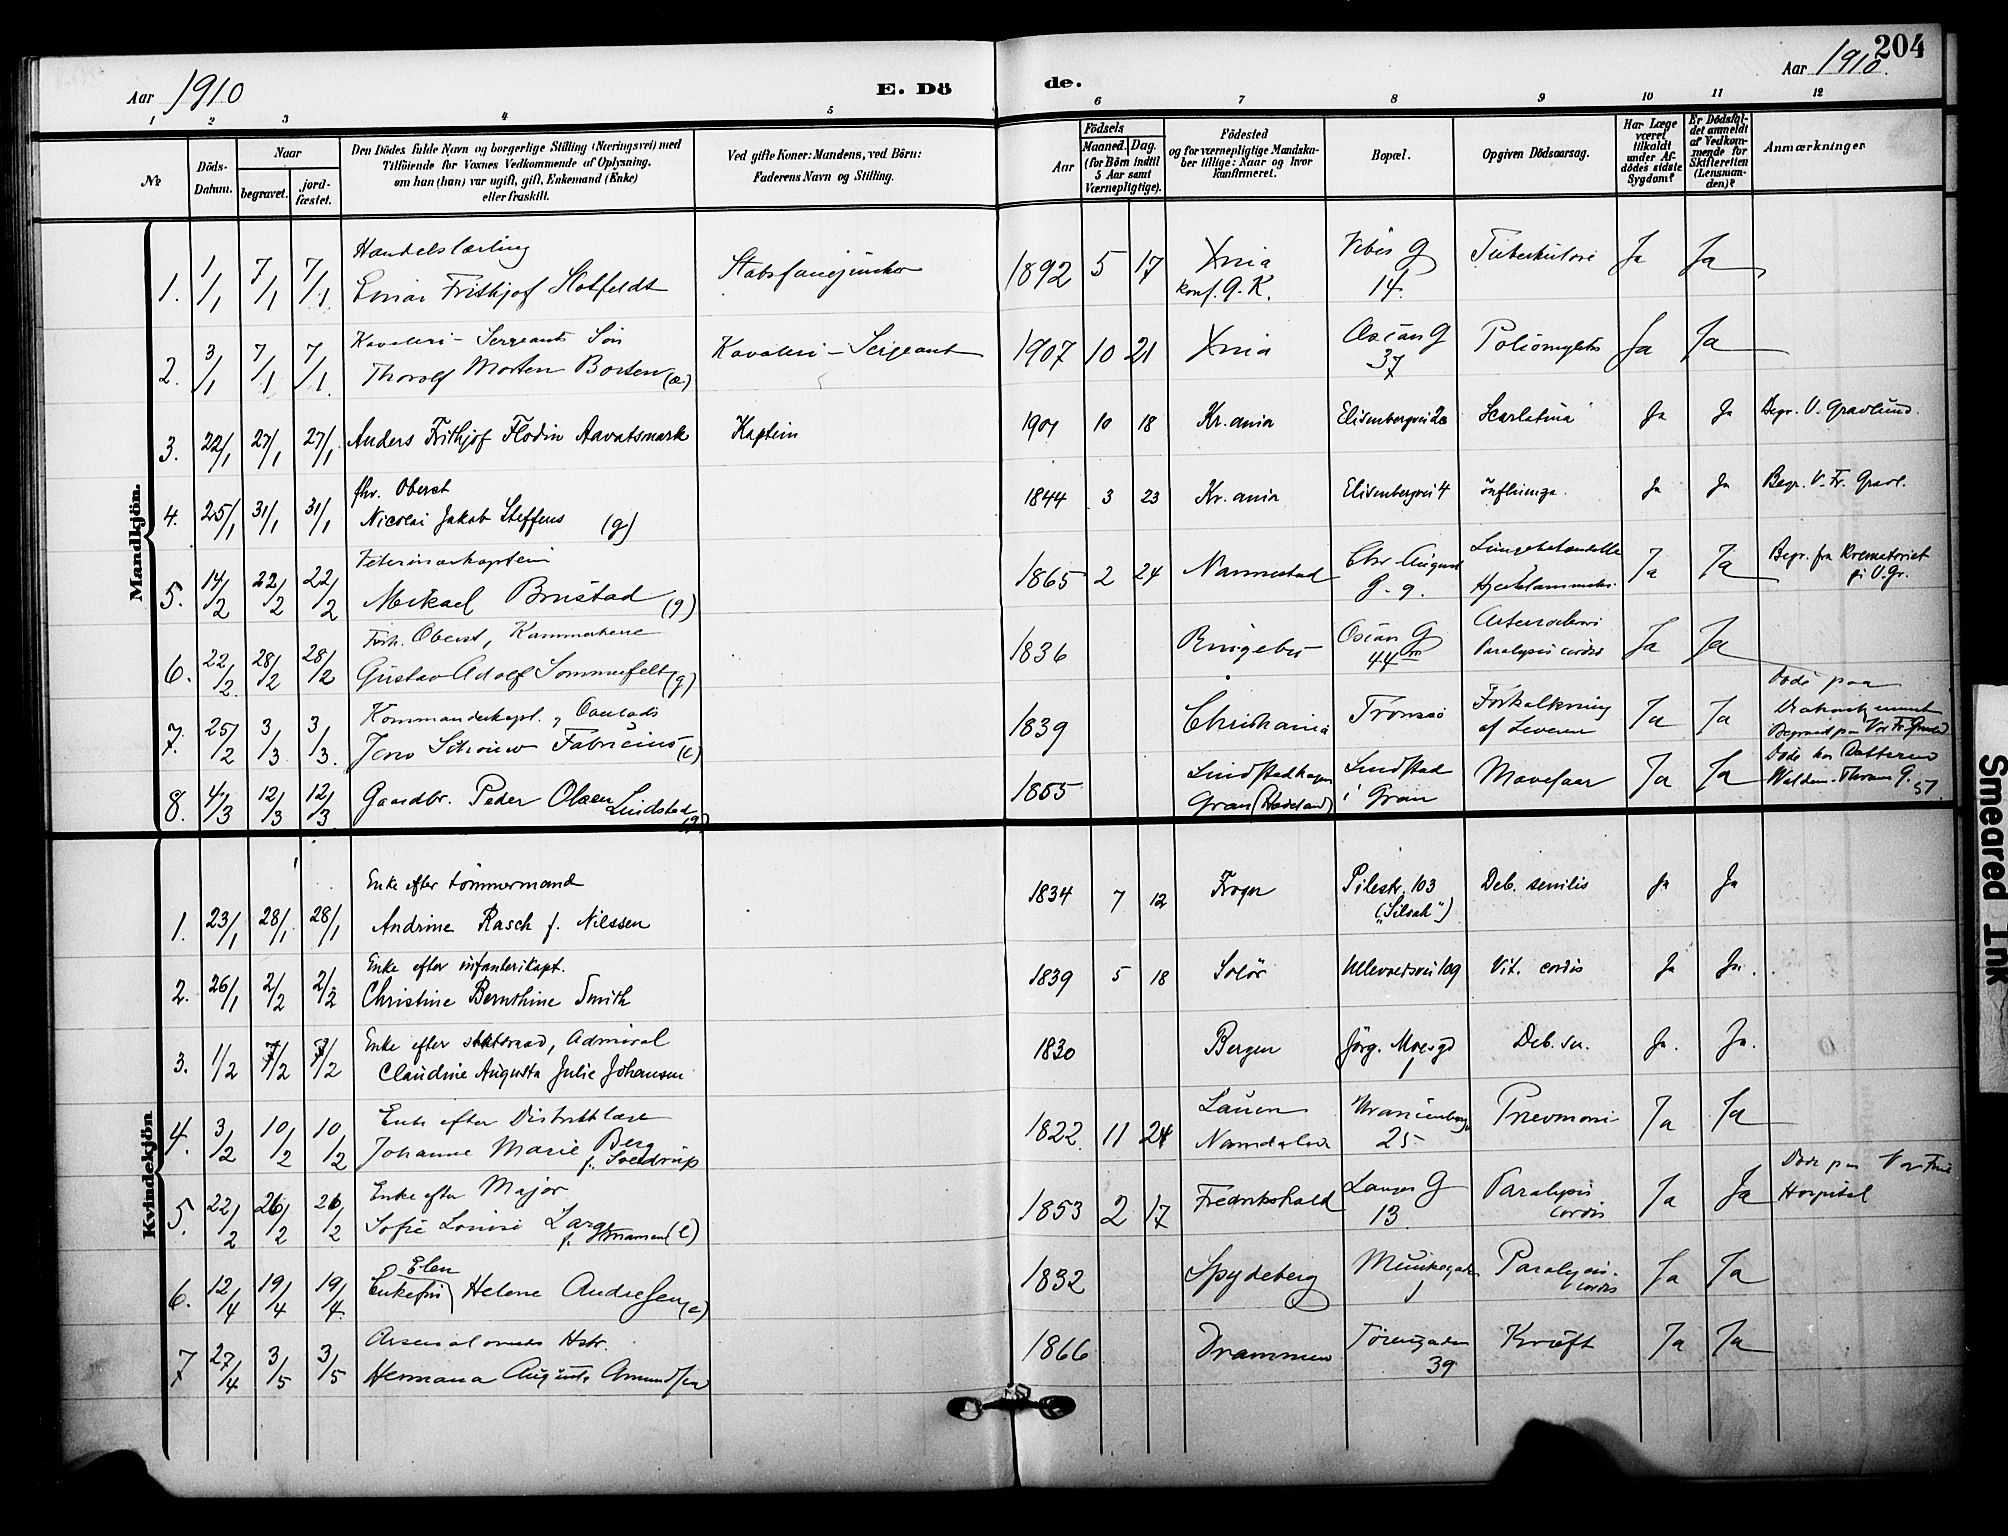 204
Aar 1910
E. Dö
de.
Aar 1910.
1 2 3 4 5 6 7 8 9 10 11 12
№
Döds-Datum.
Naar
begravet.
jord-fæstet.
Den Dödes fulde Navn og borgerlige Stilling (Næringsvei) med
Tilföiende for Voxnes Vedkommende af Oplysning,
om han (hun) var ugift, gift, Enkemand (Enke)
eller fraskilt.
Ved gifte Koner: Mandens, ved Börn:
Faderens Navn og Stilling.
Födsels
Aar
Maaned.
Dag.
(for Börn indtil
5 Aar samt
Værnepligtige).
Födested
og for værnepligtige Mandska-
ber tillige: Naar og hvor
konfirmeret.
Bopæl.
Opgiven Dödsaarsag.
Har Læge
været
tilkaldt
under Af-
dödes sidste
Sygdom?
Er Dödsfal-
det anmeldt
af Vedkom-
mende for
Skifteretten
(Lensman-
den)?
Anmærkninger
Mandkjön.
Handelslærling
1. 1/1 7/1 7/1 Einar Frithjof Stabsfanejunker 1892 5 17 Xnia konf. G. K. Vibes G 14. Tuberkulose Ja Ja
Kavaleri-Sergeants Søn
2. 3/1 7/1 7/1 Thorolf Morten Borsen (æ) Kavaleri-Sergeant 1907 10 21 Xnia Oscars G 37 Poliomyelit Ja Ja
3. 22/1 27/1 27/1 Anders Frithjof Flodin Aavatsmark Kaptein 1901 10 18 Kr.ania Elisenbergvei Scarlatina Ja Ja Begr. V. Gravlund.
fhv. Oberst
4. 25/1 31/1 31/1 Nicolai Jakob Steffens (g) 1844 3 23 Kr.ania Elisenbergvei 4 Influenza. Ja Ja Begr. V. Fr. Gravl.
Veterinærkaptein
5. 14/2 22/2 22/2 Mikael Brustad (g) 1865 2 24 Nannestad Chr August G. 9. Lungebetændelse Hjertelammelse Ja Ja Begr. fra Krematoriet på V. Gr.
Forh. Oberst, Kammerherre
6. 22/2 28/2 28/2 Gustav Adolf Sommerfelt (g) 1836 Ringebu Oscars G 44 Paralysis cordis Ja Ja
Kommandørkapt.
7. 25/2 3/3 3/3 Jens Schouw Fabricius (e) 1839 Christiania Tromsø Forkalkning af Leveren Ja Ja Døde paa Begravet paa Vor Fr. Gravl.
8. 4/3 12/3 12/3 Gaardbr. Peder Olsen Lindstad (g) 1855 Gran (Hadeland) Lindstad i Gran Mavesaar Ja Ja Døde hos Datteren Waldem. Thranes G. 51.
Kvindekjön
Enke efter tømmermand
1. 23/1 28/1 28/1 Andrine Rasch f. Nilssen 1834 7 12 Frogn Pilestr. 103 ("Siloah") Deb. senilis Ja Ja
Enke efter infanterikapt.
2. 26/1 2/2 2/2 Christine Bernthine Smith 1839 5 18 Solør Ullevoldsvei 109 Vit. cordis Ja Ja.
Enke efter statsraad, Admiral
3. 1/2 7/2 7/2 Claudine Augusta Julie Johansen 1830 Bergen Jörg. Moesgd Deb. sen. Ja. Ja.
Enke efter Distriktslæge
4. 3/2 10/2 10/2 Johanne Marie Berg f. Sverdrup 1822 11 24 Namdalen Uranienborg 25 Pneumoni Ja Ja
Enke efter Major
5. 22/2 26/2 26/2 Sofie Lovise Lange (e) 1853 2 17 Fredrikshald Langes G 13 Paralysis cordis Ja Ja Døde paa Vor Frue Hospital
Elen
6. 12/4 19/4 19/4 Enkefru Helene Andresen (e) 1832 Spydeberg Munkegaden 1 Paralysis cordis Ja Ja
7 27/4 3/5 3/5 Hermana Augusta Amundsen 1866 Drammen 39 Kræft Ja Ja
Smeared Ink